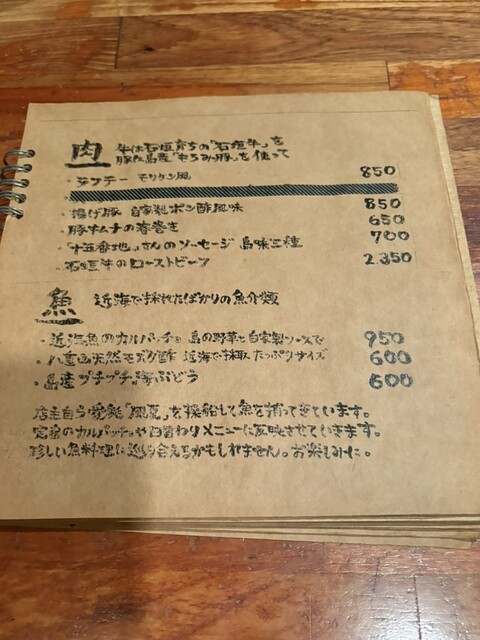 肉 牛は石垣育ちの「石垣牛」を
豚は島産「もろみ豚」を使って
・ラフテー モリケン風 850
・揚げ豚 自家製ポン酢風味 850
・豚キムチの春巻き 650
・「十五番地」さんのソーセージ 島味三種 700
・石垣牛のローストビーフ 2.350
魚 近海で採れたばかりの魚介類
・近海魚のカルパッチョ 島の野菜と自家製ソースで 950
・八重山天然モズク酢 近海で採取 たっぷりサイズ 600
・島産プチプチ海ぶどう 600
店主自ら愛艇「」を操船して魚を捕ってきています。
定番のカルパッチョや日替わりメニューに反映させていきます。
珍しい魚料理に巡り会えるかもしれません。お楽しみに。